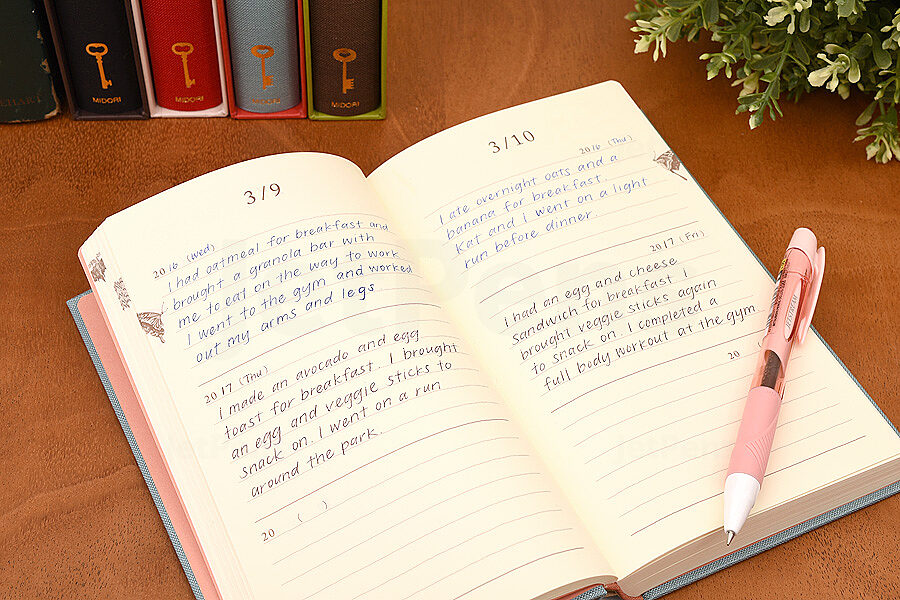 MIDORI
MIDORI
MIDORI
MIDORI
3/9
2016 (Wed)
I had oatmeal for breakfast and
brought a granola bar with
me to eat on the way to work
I went to the gym and worked
out my arms and legs.
2017 (Thu)
I made an avocado and egg
toast for breakfast. I brought
an egg and veggie sticks to
snack on. I went on a run
around the park.
20 ( )
3/10
2016 (Thu)
I ate overnight oats and a
banana for breakfast.
Kat and I went on a light
run before dinner.
2017 (Fri)
I had an egg and cheese
sandwich for breakfast I
brought veggie sticks again
to snack on. I completed a
full body workout at the gym.
20 (